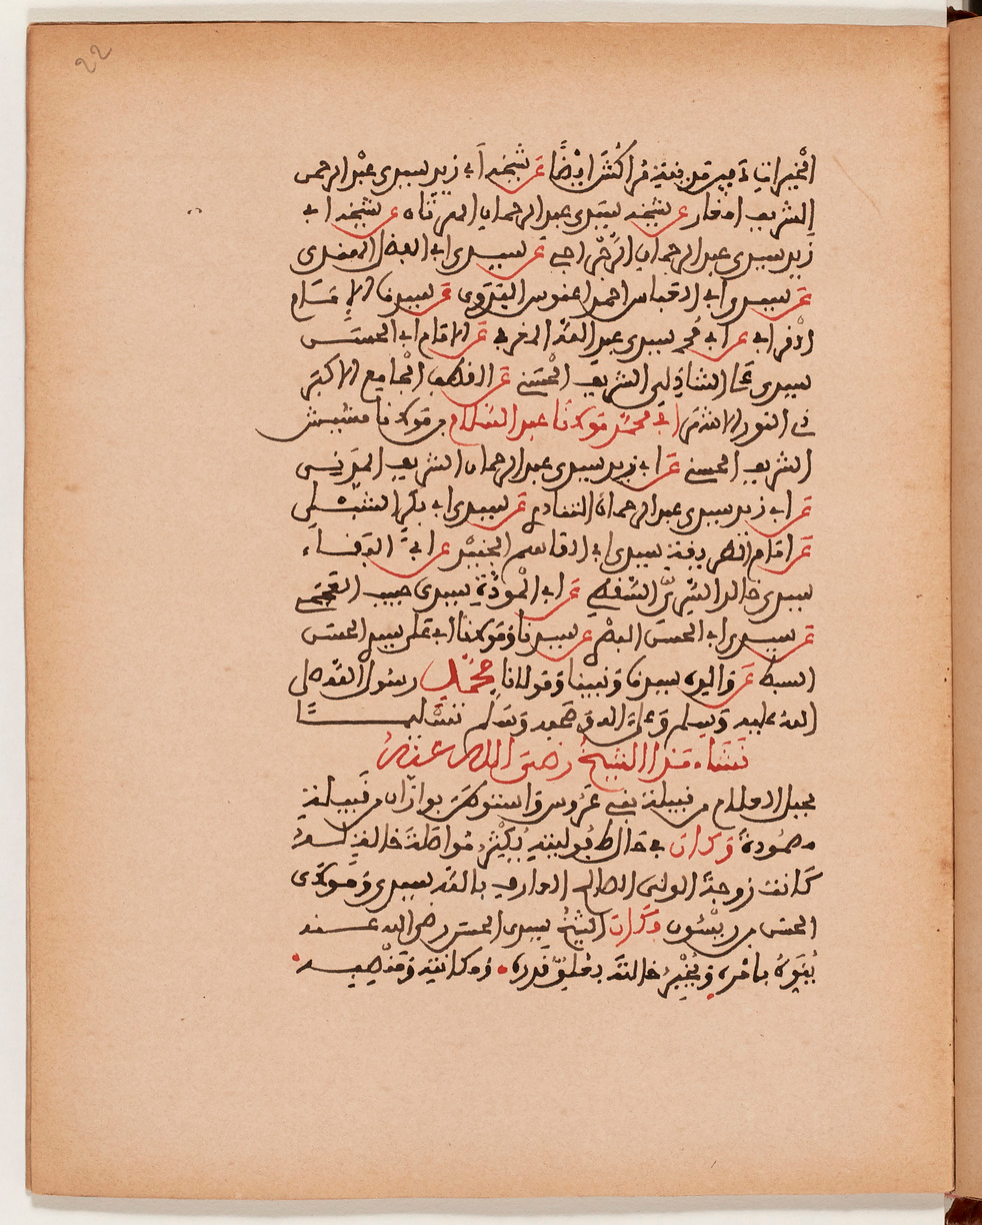 22
الشريف امغار عن شيخه سيدي عبد الرحمان عن شيخه ابي
زيد سيدي عبد الرحمان الرجراجي عن سيدي ابي الفضل الهندي
عن سيدي ابي العباس احمد عنوس البدوي عن سيدنا الامام
القرافي عن ابي محمد سيدي عبد الله المغربي عن الامام ابي الحسن
سيدي علي الشاذلي الشريف الحسني عن القطب الجامع الاكبر
ذي النور الاشهر ابي محمد مولانا عبد السلام بن مولانا مشيش
الشريف الحسني عن ابي زيد سيدي عبد الرحمان الشريف المدني
عن ابي زيد سيدي عبد الرحمان عن سيدي ابي بكر الشبلي
عن امام الطريقة سيدي ابي القاسم الجنيد عن ابي الوفاء
سيدي خالد السري السقطي عن ابي سيدي حبيب العجمي
عن سيدي ابي الحسن البصري عن سيدنا ومولانا ابي علي سيدي الحسن
السبط عن واليه سيدنا ونبينا ومولانا محمد رسول الله صلى
الله عليه وسلم وعلى اله وصحبه وسلم تسليما
نشاء هذا الشيخ رضي الله عنه
بجبل العلام من قبيلة بني عروس واستوطن بوازان من قبيلة
مصمودة وكان في حال طفوليته يكثر مواصلة خالة له
كانت زوجة الولي الصالح العارف بالله سيدي ومولاي
الحسن بن ريسون وكان الشيخ سيدي الحسن رضي الله عنه
ينوه بامره ويخبر خالته بعلو قدره ومكانته ومنصبه